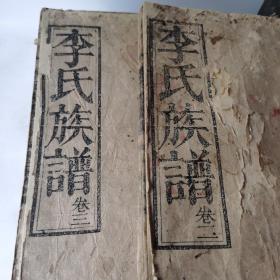 李氏族譜 卷三
李氏族譜 卷二